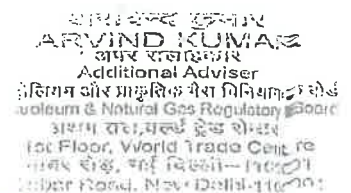 अरविन्द कुमार
ARVIND KUMAR
अपर सलाहकार
Additional Adviser
और प्राकृतिक गैस विनियामक बोर्ड
& Natural Gas Regulatory Board
प्रथम तल, वर्ल्ड ट्रेड सेन्टर
1st Floor, World Trade Centre
रोड, नई दिल्ली-
Road, New Delhi-